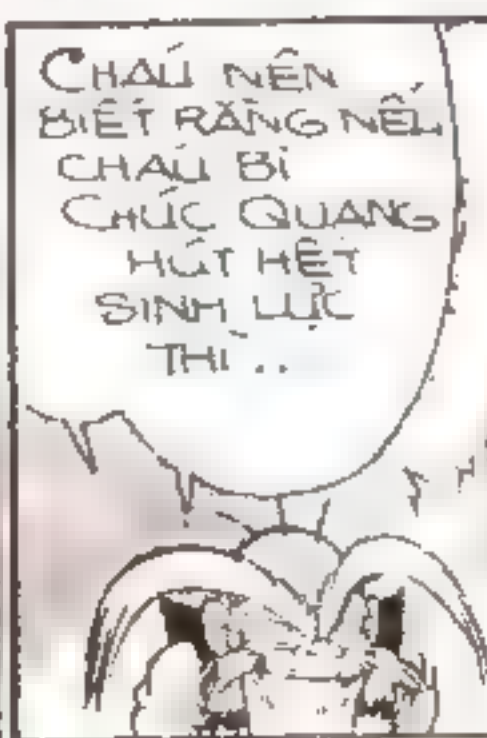 CHÁU NÊN
BIẾT RẰNG NẾU
CHÁU BỊ
CHÚC QUANG
HÚT HẾT
SINH LỰC
THÌ..